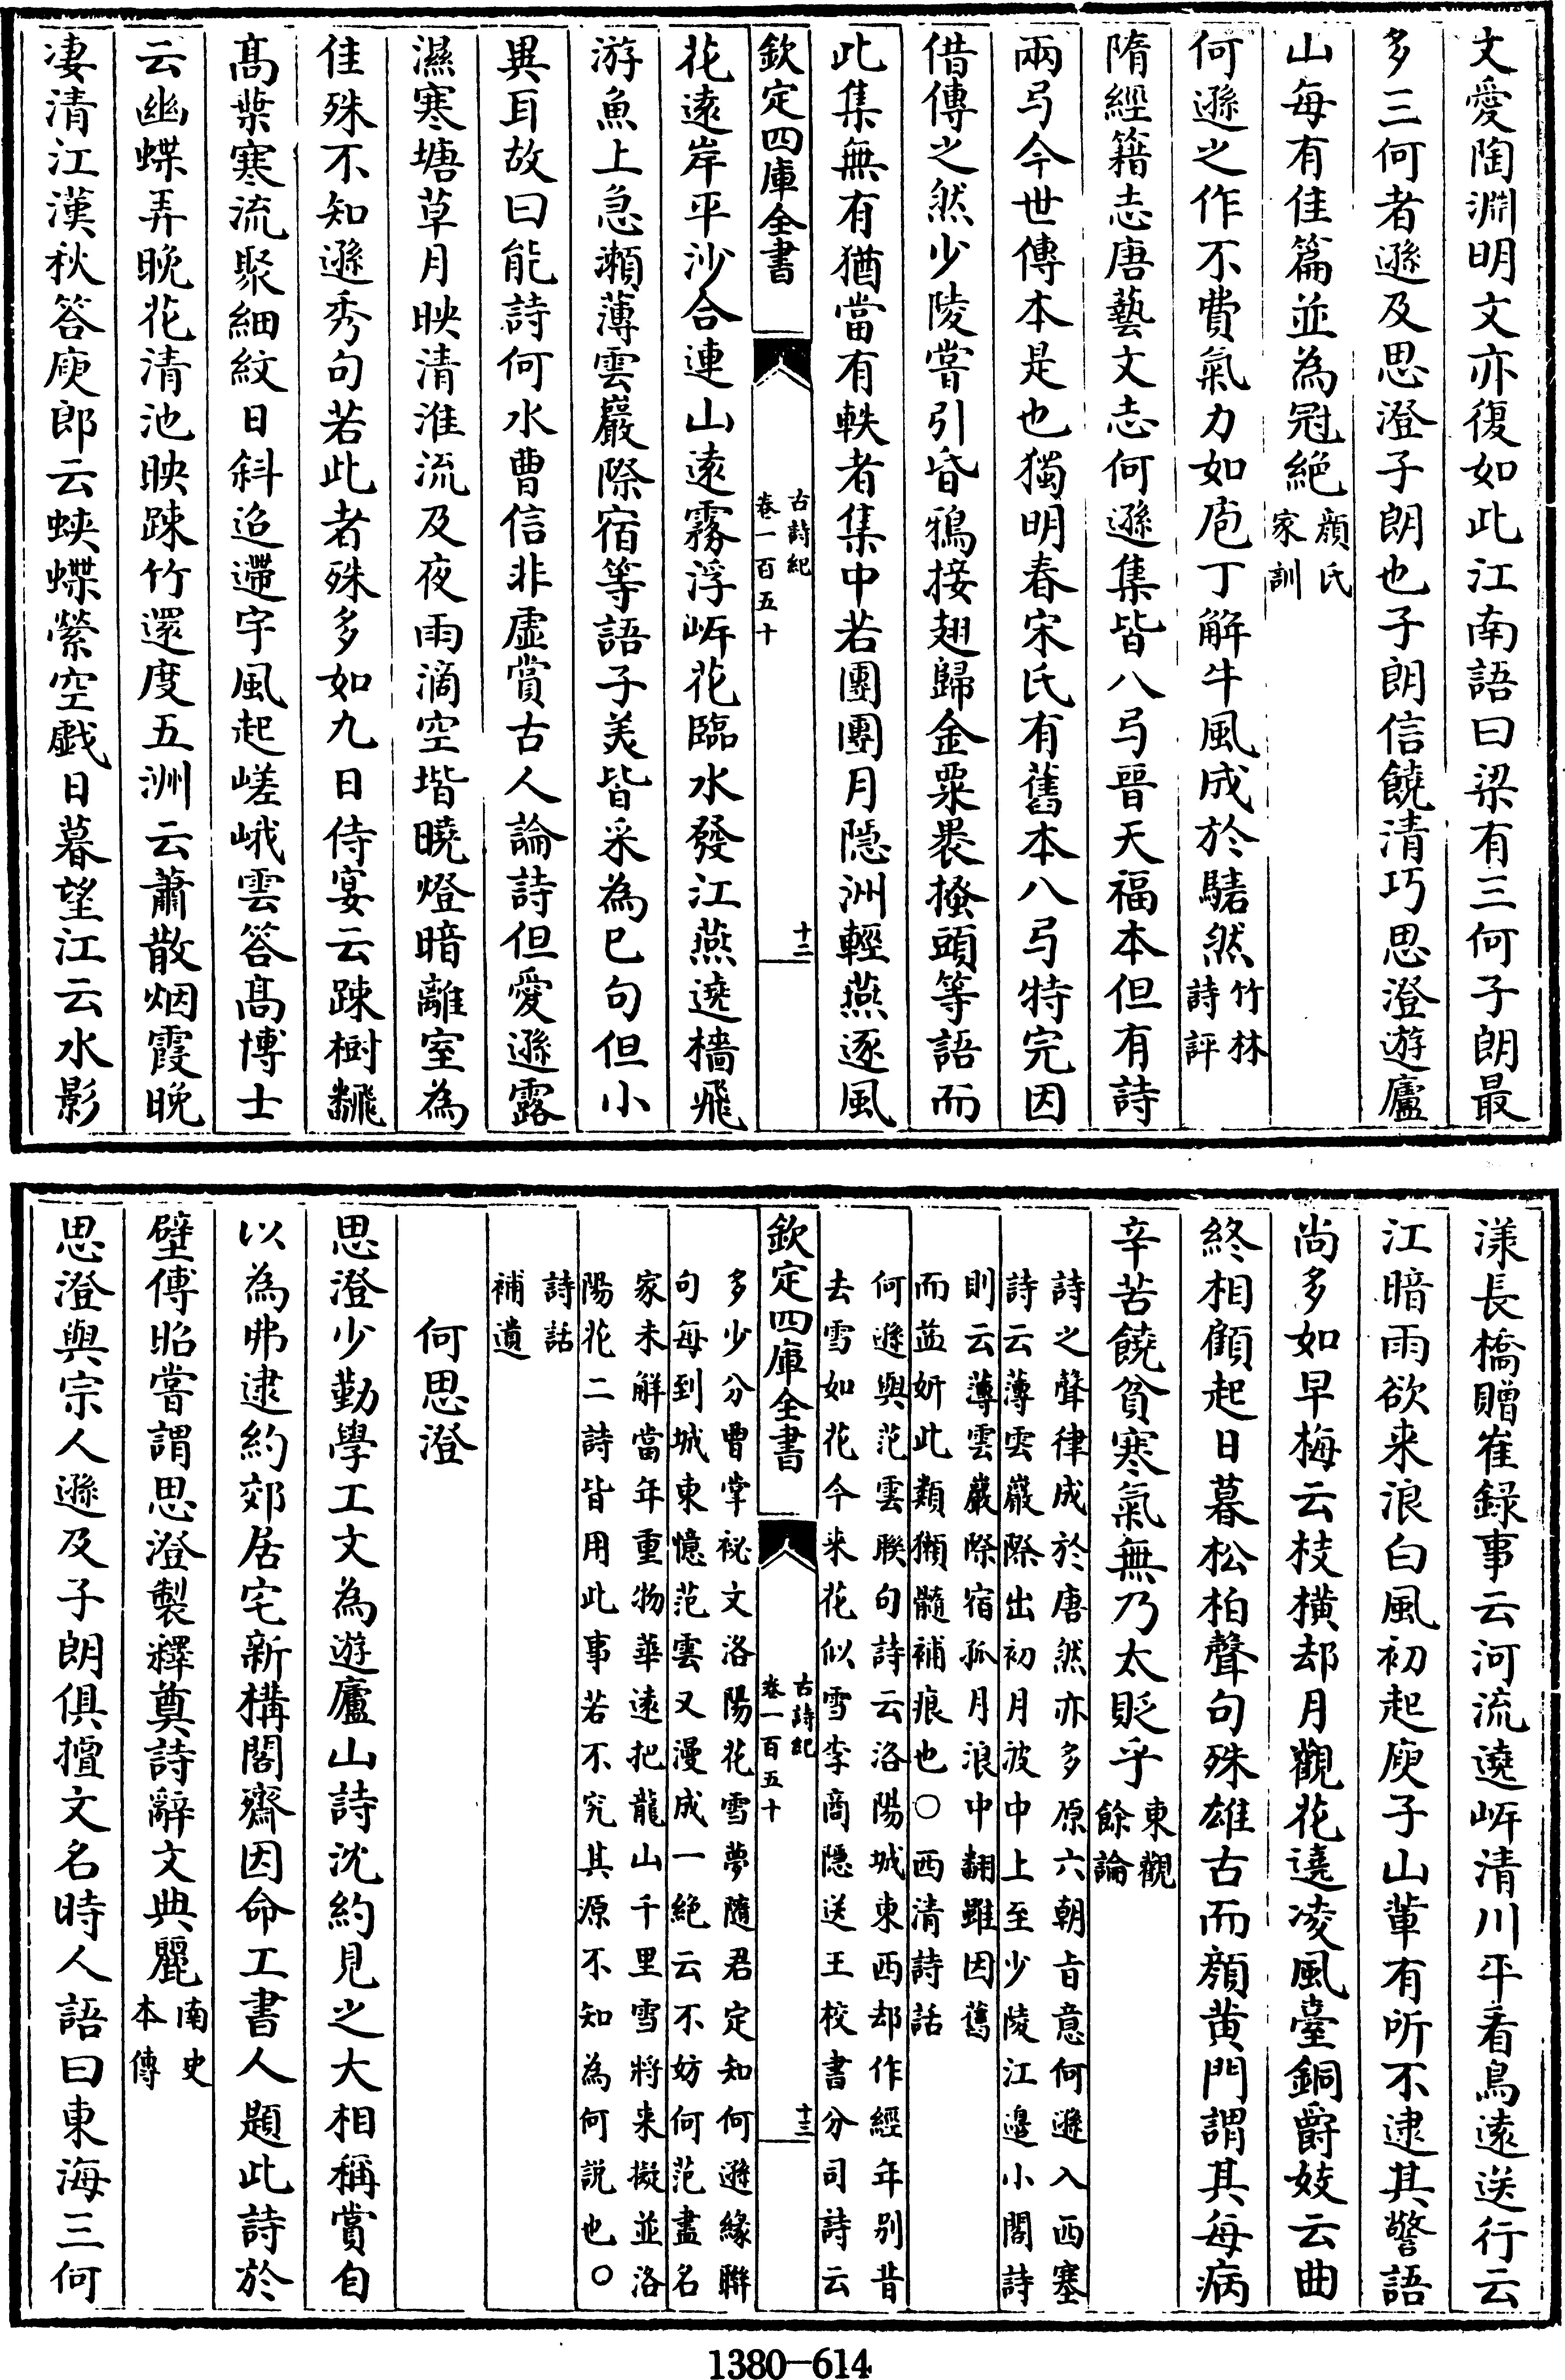 文愛陶淵明文亦復如此江南語曰梁有三何子朗最
多三何者遜及思澄子朗也子朗信饒清巧思澄遊廬
山每有佳篇並為冠絕顔氏家訓
何遜之作不費氣力如庖丁解牛風成於騞然竹林詩評
隋經籍志唐藝文志何遜集皆八弓晉天福本但有詩
兩弓今世傳本是也獨明春宋氏有舊本八弓特完因
借傳之然少陵嘗引昏鴉接翅歸金粟裹搔頭等語而
此集無有猶當有軼者集中若團團月隱洲輕燕逐風
欽定四庫全書
古詩紀
卷一百五十
十二
花遠岸平沙合連山遠霧浮岍花臨水發江燕遶檣飛
游魚上急瀬薄雲巖際宿等語子美皆采為已句但小
異耳故曰能詩何水曹信非虛賞古人論詩但愛遜露
濕寒塘草月映清淮流及夜雨滴空堦曉燈暗離室為
佳殊不知遜秀句若此者殊多如九日侍宴云踈樹翻
髙葉寒流聚細紋日斜迢遰宇風起嵯峨雲答髙博士
云幽蝶弄晩花清池映踈竹還度五洲云蕭散烟霞晩
凄清江漢秋答庾郎云蛺蝶縈空戲日暮望江云水影
漾長橋贈崔錄事云河流遶岍清川平看鳥遠送行云
江暗雨欲来浪白風初起庾子山輩有所不逮其警語
尚多如早梅云枝横却月觀花遶凌風臺銅爵妓云曲
終相顧起日暮松柏聲句殊雄古而顔黄門謂其每病
辛苦饒貧寒氣無乃太貶乎東觀餘論
詩之聲律成於唐然亦多原六朝旨意何遜入西塞
詩云薄雲巖際出初月波中上至少陵江邊小閣詩
則云薄雲巖際宿孤月浪中翻雖因舊
而益妍此類獺髓補痕也○西清詩話
何遜與范雲聫句詩云洛陽城東西却作經年别昔
去雪如花今来花似雪李商隱送王校書分司詩云
欽定四庫全書
古詩紀
卷一百五十
十三
多少分曹掌祕文洛陽花雪夢隨君定知何遜緣聨
句每到城東憶范雲又漫成一絶云不妨何范盡名
家未解當年重物華遠把龍山千里雪将来擬並洛
陽花二詩皆用此事若不究其源不知為何説也○
詩話
補遺
何思澄
思澄少勤學工文為遊廬山詩沈約見之大相稱賞自
以為弗逮約郊居宅新構閣齋因命工書人題此詩於
壁傅昭嘗謂思澄製釋奠詩辭文典麗南史本傳
思澄與宗人遜及子朗俱擅文名時人語曰東海三何
1380-614